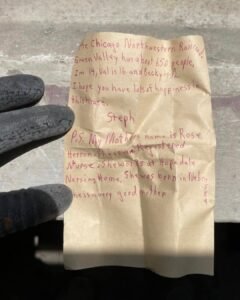 The Chicago Northwestern Railroad
Green Valley has about 650 people,
Im 14, Val is 16 and Becky is
I hope you have lots of happiness in
this
Steph
P.S. My Mother's name is Rose
a Registered
Nurse. She works at Hopedale
Nursing Home. She was born in
She is a very good mother.